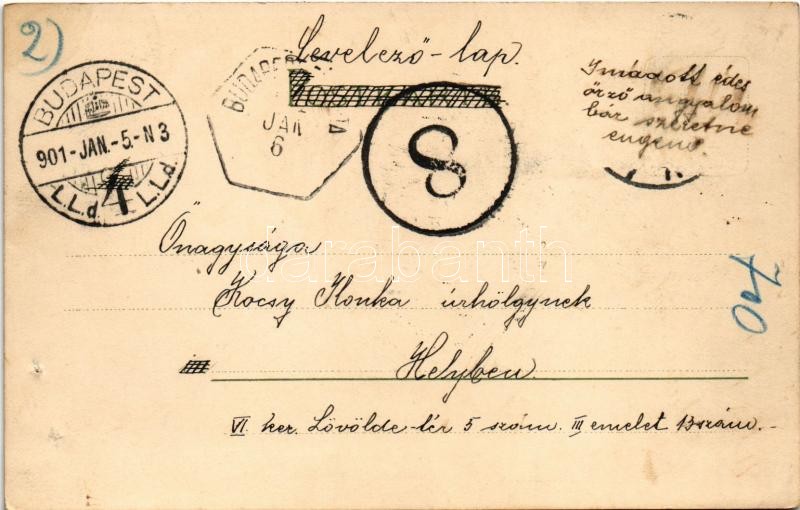 2)
Levelező-lap.
BUDAPEST
901-JAN.-5-N3
L.L.d. 4 L.L.d.
BUDAPEST
JAN
6
8
Imádott édes
őrző angyalom
bár szeretne
engem.
Őnagysága
Kocsy Ilonka úrhölgynek
Helyben.
VI ker. Lövölde-tér 5 szám. III emelet 13 szám.-
darabanth